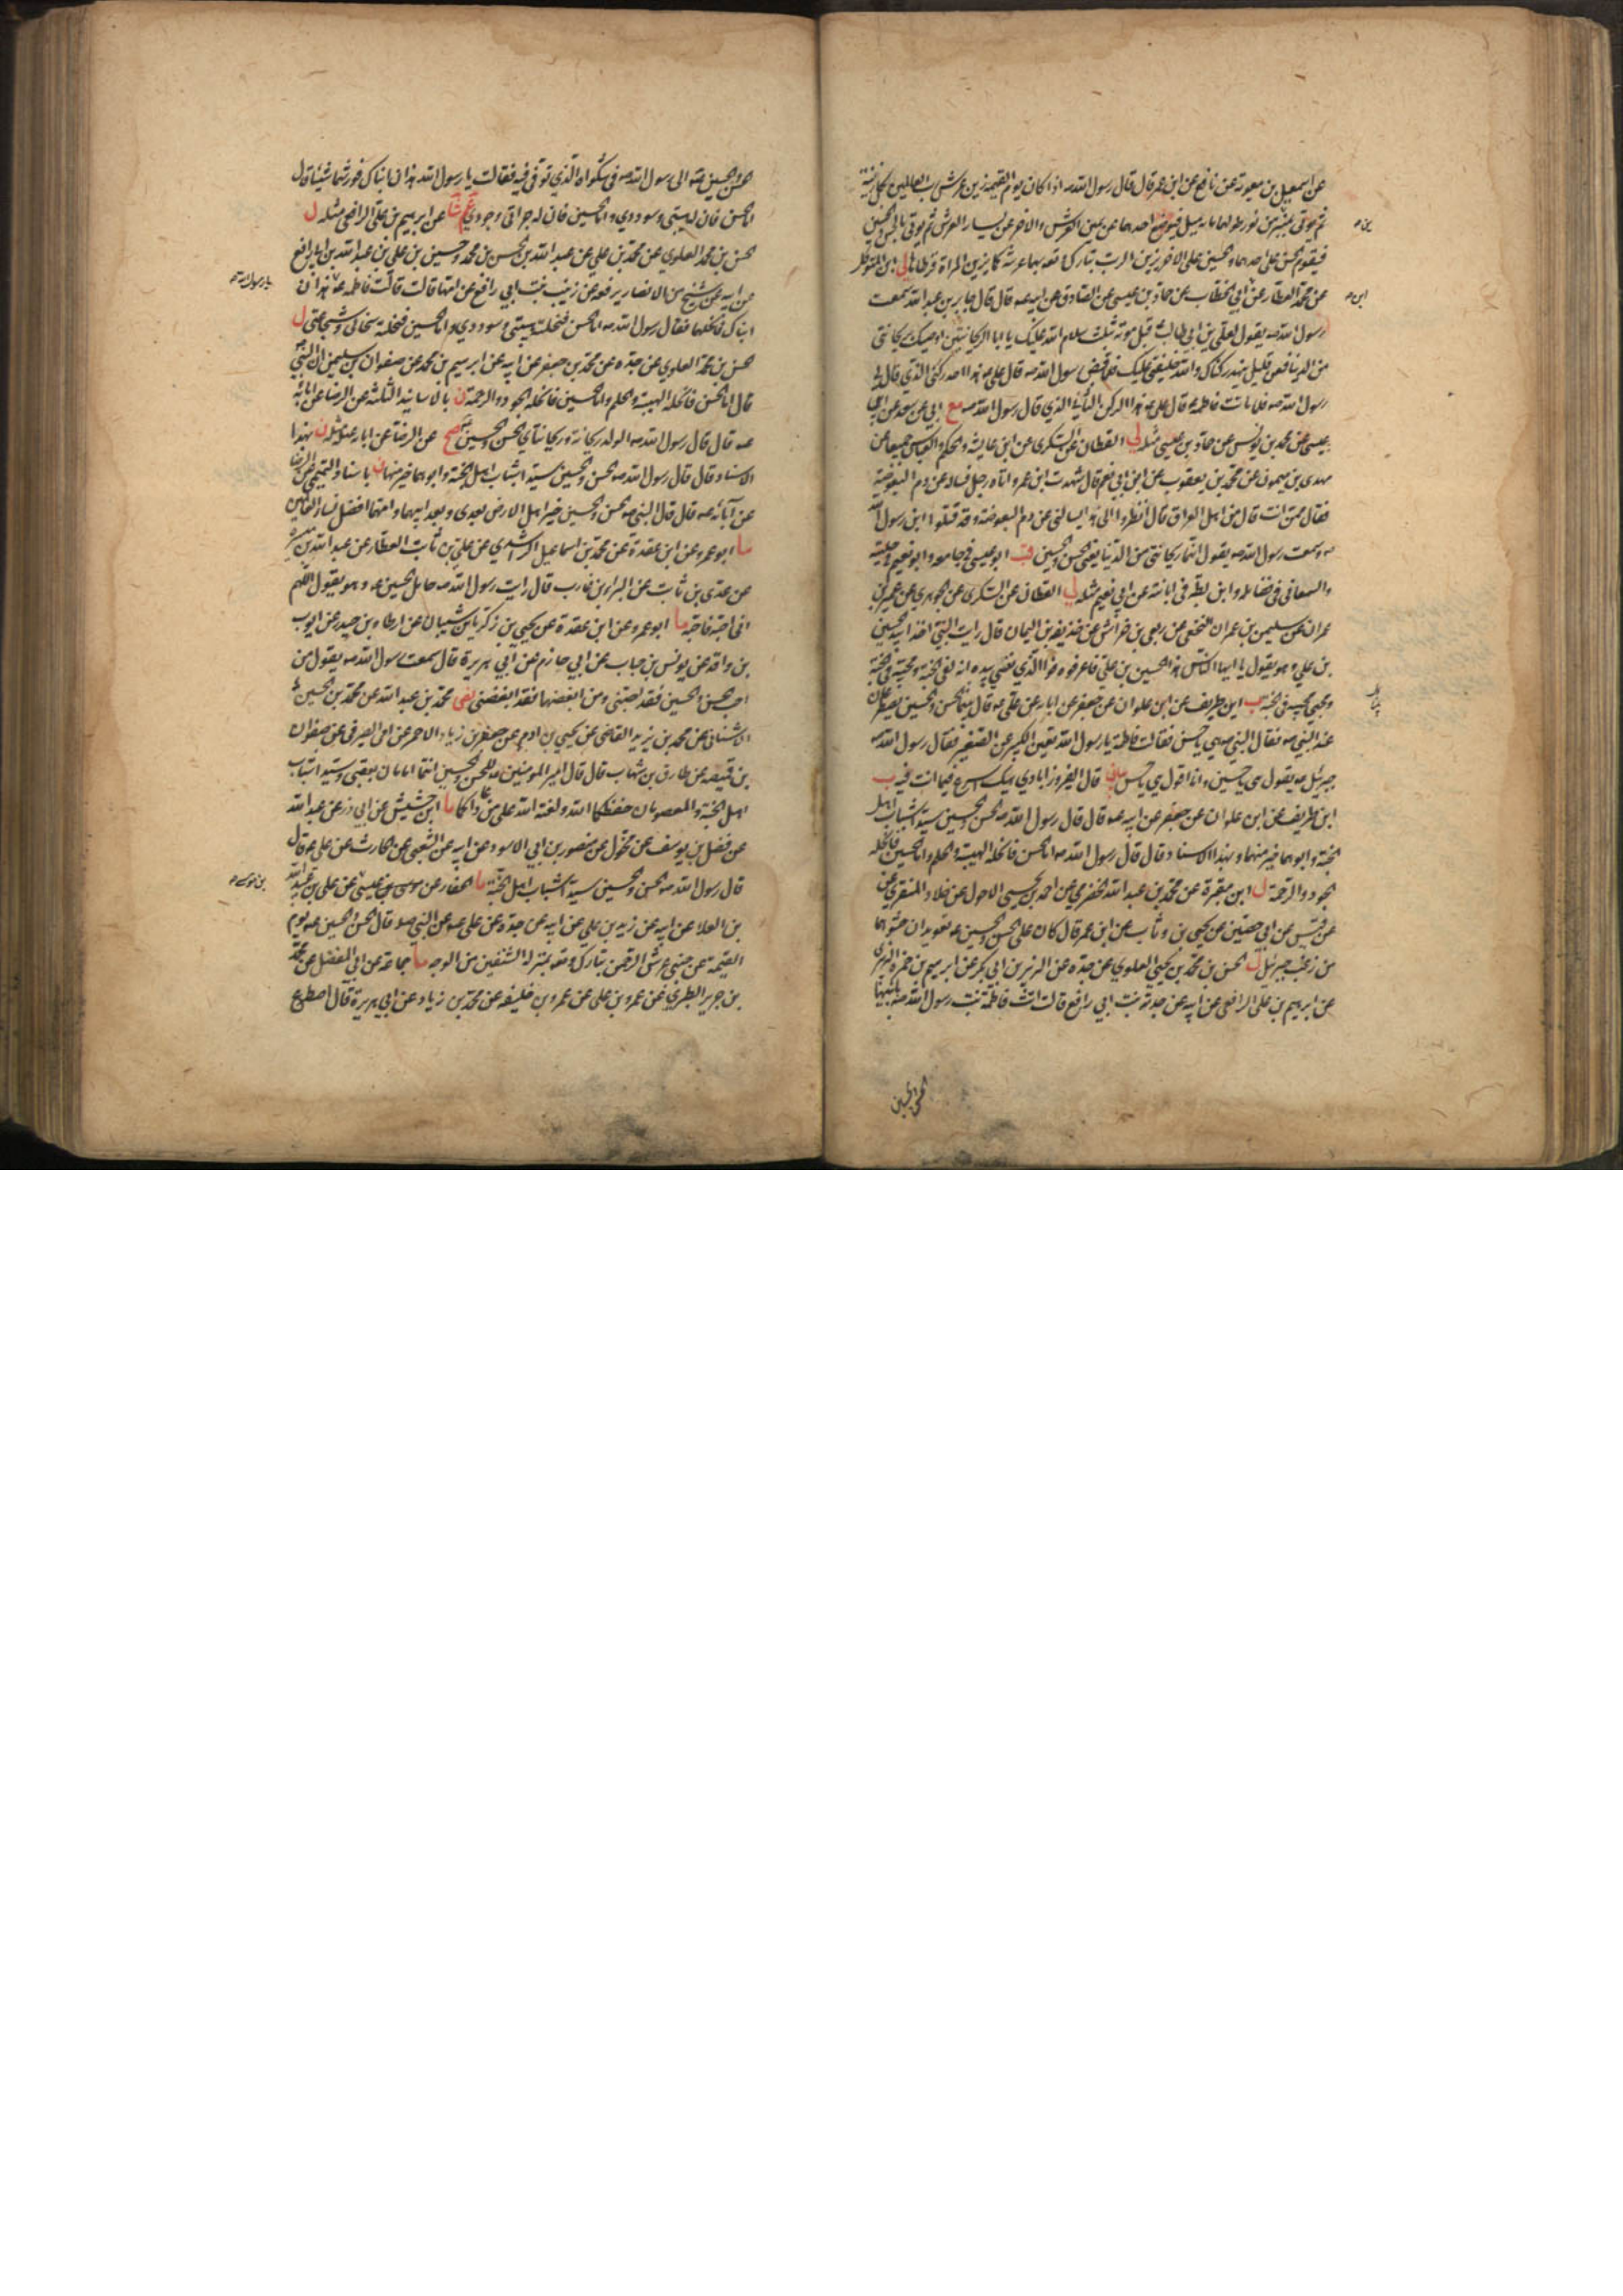 عن اسمعيل بن معوية عن نافع عن ابن عمر قال قال رسول الله ص اذا كان يوم القيمة زين عرش رب العالمين بكل زينة
ثم يوتى بمنبرين من نور طولهما مائة ميل فيوضع احدهما عن يمين العرش والاخر عن يسار العرش ثم يوتى بالحسن والحسين
فيقوم الحسن على احدهما والحسين على الاخر يزين الرب تبارك وتعالى بهما عرشه كما يزين المراة قرطاها لى ابن المتوكل
عن محمد العطار عن ابن ابي الخطاب عن حماد بن عيسى عن الصادق عن ابيه ع قال قال جابر بن عبد الله سمعت
رسول الله ص يقول لعلي بن ابي طالب ع قبل موته بثلث سلام الله عليك يا ابا الريحانتين اوصيك بريحانتي
من الدنيا فعن قليل ينهد ركناك والله خليفتي عليك فلما قبض رسول الله ص قال علي ع هذا احد ركني الذي قال لي
رسول الله ص فلما ماتت فاطمة ع قال علي ع هذا الركن الثاني الذي قال رسول الله ص مع ابي عن سعد عن ابن
عيسى عن محمد بن يونس عن حماد بن عيسى مثله لى القطان عن السكري عن ابن عايشة والحكم والعباس جميعا عن
مهدي بن ميمون عن محمد بن يعقوب عن ابن ابي نعم قال شهدت ابن عمر واتاه رجل فساله عن دم البعوضة
فقال ممن انت قال من اهل العراق قال انظروا الى هذا يسالني عن دم البعوضة وقد قتلوا ابن رسول الله
ص وسمعت رسول الله ص يقول انهما ريحانتي من الدنيا يعني الحسن والحسين قب ابو عيسى في جامعه وابو نعيم في حليته
والسمعاني في فضائله وابن بطة في ابانته عن ابي نعيم مثله لى القطان عن السكري عن الجوهري عن عمير بن
عمران عن سليمن بن عمران النخعي عن ربعي بن خراش عن حذيفة بن اليمان قال رايت النبي اخذا بيد الحسين
بن علي وهو يقول يا ايها الناس هذا الحسين بن علي فاعرفوه فوالذي نفسي بيده انه لفي الجنة ومحبيه في الجنة
ومحبي محبيه في الجنة ب ابن طريف عن ابن علوان عن جعفر عن ابيه عن علي ع قال بينما الحسن والحسين يصطرعان
عند النبي ص فقال النبي ص هي يا حسن فقالت فاطمة يا رسول الله تعين الكبير على الصغير فقال رسول الله ص
جبرئيل ع يقول هي يا حسين وانا اقول هي يا حسن بيان قال الفيروزابادي هيك اسرع فيما انت فيه ب
ابن طريف عن ابن علوان عن جعفر عن ابيه ع قال قال رسول الله ص الحسن والحسين سيدا شباب اهل
الجنة وابوهما خير منهما وبهذا الاسناد قال قال رسول الله ص اما الحسن فانحله الهيبة والحلم واما الحسين فانحله
الجود والرحمة ل ابن مقبرة عن محمد بن عبد الله الحضرمي عن احمد بن يحيى الاحول عن خلاد المنقري عن
عن قيس عن ابي حصين عن يحيى بن وثاب عن ابن عمر قال كان على الحسن والحسين ع تعويذان حشوهما
من زغب جبرئيل ل الحسن بن محمد بن يحيى العلوي عن جده عن الزبير بن ابي بكر عن ابرهيم بن حمزة الزبيري
عن ابرهيم بن علي الرافعي عن ابيه عن جدته بنت ابي رافع قالت اتت فاطمة بنت رسول الله ص بابنيها
الحسن والحسين
الحسن والحسين ع الى رسول الله ص في شكواه الذي توفي فيه فقالت يا رسول الله هذان ابناك فورثهما شيئا قال
اما الحسن فان له هيبتي وسوددي واما الحسين فان له جراتي وجودي عم شا عن ابرهيم بن علي الرافعي مثله ل
الحسن بن محمد العلوي عن محمد بن علي عن عبد الله بن الحسن بن محمد وحسين بن علي بن عبد الله بن ابي رافع
عن ابيه عن شيخ من الانصار يرفعه عن زينب بنت ابي رافع عن امها قالت قالت فاطمة ع هذان
يا رسول الله ص
ابناك فانحلهما فقال رسول الله ص اما الحسن فنحلته هيبتي وسوددي واما الحسين فنحلته سخائي وشجاعتي ل
الحسن بن محمد العلوي عن جده عن محمد بن جعفر عن ابيه عن ابرهيم بن محمد عن صفوان بن سليمن ان النبي ص
قال اما الحسن فانحله الهيبة والحلم واما الحسين فانحله الجود والرحمة ن بالاسانيد الثلثة عن الرضا عن ابائه
ع قال قال رسول الله ص الولد ريحانة وريحانتاي الحسن والحسين صح عن الرضا عن ابائه ع مثله ن بهذا
الاسناد قال قال رسول الله ص الحسن والحسين سيدا شباب اهل الجنة وابوهما خير منهما ن باسناد التميمي عن الرضا
عن آبائه ع قال قال النبي ص الحسن والحسين خير اهل الارض بعدي وبعد ابيهما وامهما افضل نساء اهل الارض
ما ابو عمرو عن ابن عقدة عن محمد بن اسماعيل الراشدي عن علي بن ثابت العطار عن عبد الله بن ميسرة
عن عدي بن ثابت عن البراء بن عازب قال رايت رسول الله ص حامل الحسين ع وهو يقول اللهم
اني احبه فاحبه ما ابو عمرو عن ابن عقدة عن يحيى بن زكريا بن شيبان عن ارطاة بن حبيب عن ايوب
بن واقد عن يونس بن خباب عن ابي حازم عن ابي هريرة قال سمعت رسول الله ص يقول من
احب الحسن والحسين فقد احبني ومن ابغضهما فقد ابغضني نص محمد بن عبد الله عن محمد بن الحسين
الاشناني عن محمد بن يزيد القاضي عن يحيى بن ادم عن جعفر بن زياد الاحمر عن ابي الصيرفي عن صفوان
بن قبيصة عن طارق بن شهاب قال قال امير المومنين ع للحسن والحسين انتما امامان بعقبي وسيدا شباب
اهل الجنة والمعصومان حفظكما الله ولعنة الله على من عاداكما ما ابن حشيش عن ابي ذر عن عبد الله
عن فضل بن يوسف عن مخول عن منصور بن ابي الاسود عن ابيه عن الشعبي عن الحارث عن علي ع قال
قال رسول الله ص الحسن والحسين سيدا شباب اهل الجنة ما الحفار عن موسى بن عيسى عن علي بن عبد الله
بن العلا عن ابيه عن زيد بن علي عن ابيه عن جده عن علي ع عن النبي ص قال الحسن والحسين ع يوم
القيمة عن جنبي عرش الرحمن تبارك وتعالى بمنزلة الشنفين من الوجه ما جماعة عن ابي المفضل عن محمد
بن جرير الطبري عن عمرو بن علي عن عمرو بن خليفة عن محمد بن زياد عن ابي هريرة قال اصطرع